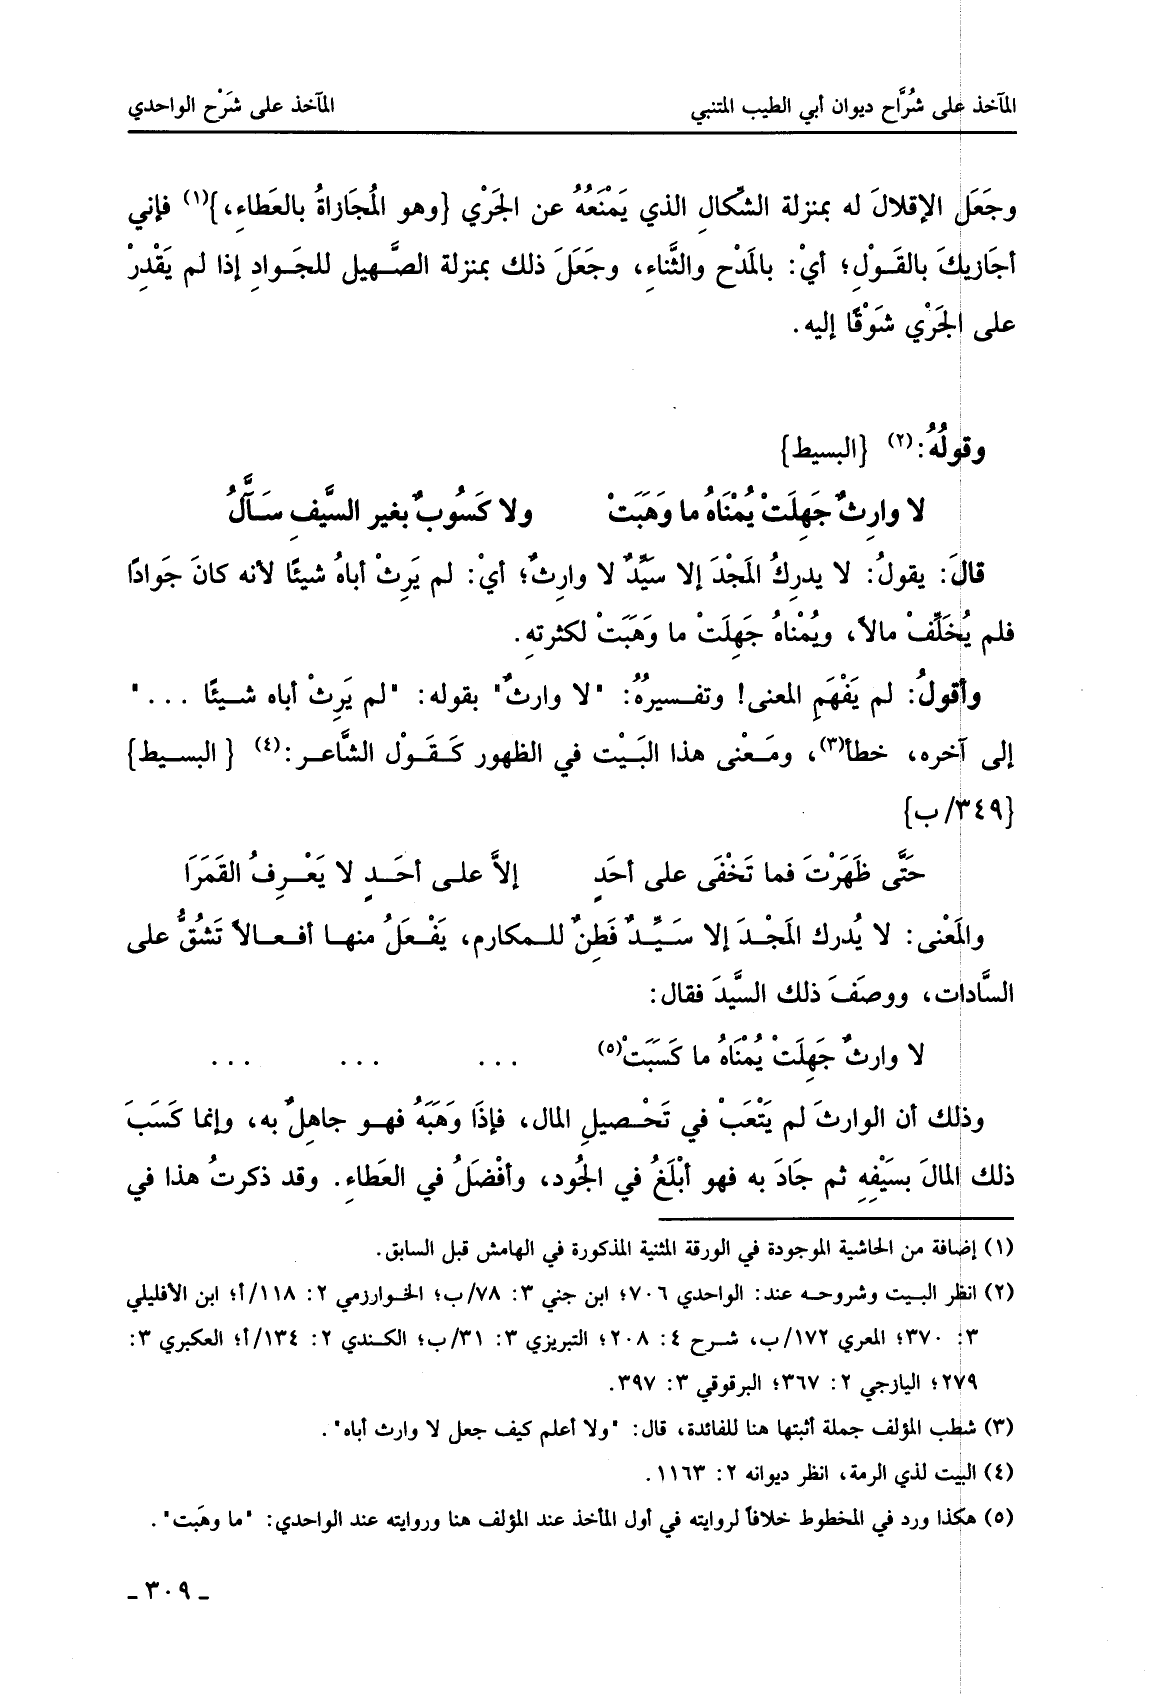 المآخذ على شُرَّاح ديوان أبي الطيب المتنبي المآخذ على شَرْح الواحدي
وجَعَلَ الإقلالَ له بمنزلة الشِّكالِ الذي يَمْنَعُهُ عن الجَرْي {وهو المُجَازاةُ بالعَطاءِ،}(١) فإني
أجَازيكَ بالقَـوْلِ؛ أيْ: بالمَدْح والثَّناءِ، وجَعَلَ ذلك بمنزلة الصَّـهيل للجَـوادِ إذا لم يَقْدِرْ
على الجَرْي شَوْقًا إليه.
وقولُهُ:(٢) {البسيط}
لا وارِثٌ جَهِلَتْ يُمْنَاهُ ما وَهَبَتْ ولا كَسُوبٌ بغير السَّيْفِ سَـأّلُ
قالَ: يقولُ: لا يدرِكُ المَجْدَ إلا سَيِّدٌ لا وارِثٌ؛ أيْ: لم يَرِثْ أباهُ شيئًا لأنه كانَ جَوادًا
فلم يُخَلِّفْ مالاً، ويُمْناهُ جَهِلَتْ ما وَهَبَتْ لكثرتهِ.
وأقولُ: لم يَفْهَمِ المعنى! وتفـسيرُهُ: "لا وارثٌ" بقوله: "لم يَرِثْ أباه شـيئًا ..."
إلى آخره، خطأ(٣)، ومَـعْنى هذا البَـيْت في الظهور كَـقَـوْل الشَّاعـر:(٤) {البسـيط}
{٣٤٩/ب}
حَتَّى ظَهَرْتَ فما تَخْفَى على أحَدٍ إلاَّ علـى أحَـدٍ لا يَعْـرِفُ القَمَرَا
والمَعْنى: لا يُدرك المَجْـدَ إلا سَـيِّـدٌ فَطِنٌ للـمكارم، يَفْـعَلُ منهـا أفـعـالاً تَشُقُّ على
السَّادات، ووصَفَ ذلك السَّيِّدَ فقال:
لا وارثٌ جَهِلَتْ يُمْنَاهُ ما كَسَبَتْ(٥) ... ... ...
وذلك أن الوارثَ لم يَتْعَبْ في تَحْـصيلِ المال، فإذَا وَهَبَهُ فهـو جاهِلٌ به، وإنما كَسَبَ
ذلك المالَ بسَيْفِهِ ثم جَادَ به فهو أبْلَغُ في الجُود، وأفْضَلُ في العَطاءِ. وقد ذكرتُ هذا في
(١) إضافة من الحاشية الموجودة في الورقة المثنية المذكورة في الهامش قبل السابق.
(٢) انظر البـيت وشروحـه عند: الواحدي ٧٠٦؛ ابن جني ٣: ٧٨/ب؛ الخـوارزمي ٢: ١١٨/أ؛ ابن الأفليلي
٣: ٣٧٠؛ المعري ١٧٢/ب، شـرح ٤: ٢٠٨؛ التبريزي ٣: ٣١/ب؛ الكـندي ٢: ١٣٤/أ؛ العكبري ٣:
٢٧٩؛ اليازجي ٢: ٣٦٧؛ البرقوقي ٣: ٣٩٧.
(٣) شطب المؤلف جملة أثبتها هنا للفائدة، قال: "ولا أعلم كيف جعل لا وارث أباه".
(٤) البيت لذي الرمة، انظر ديوانه ٢: ١١٦٣.
(٥) هكذا ورد في المخطوط خلافاً لروايته في أول المأخذ عند المؤلف هنا وروايته عند الواحدي: "ما وهَبت".
ـ ٣٠٩ ـ